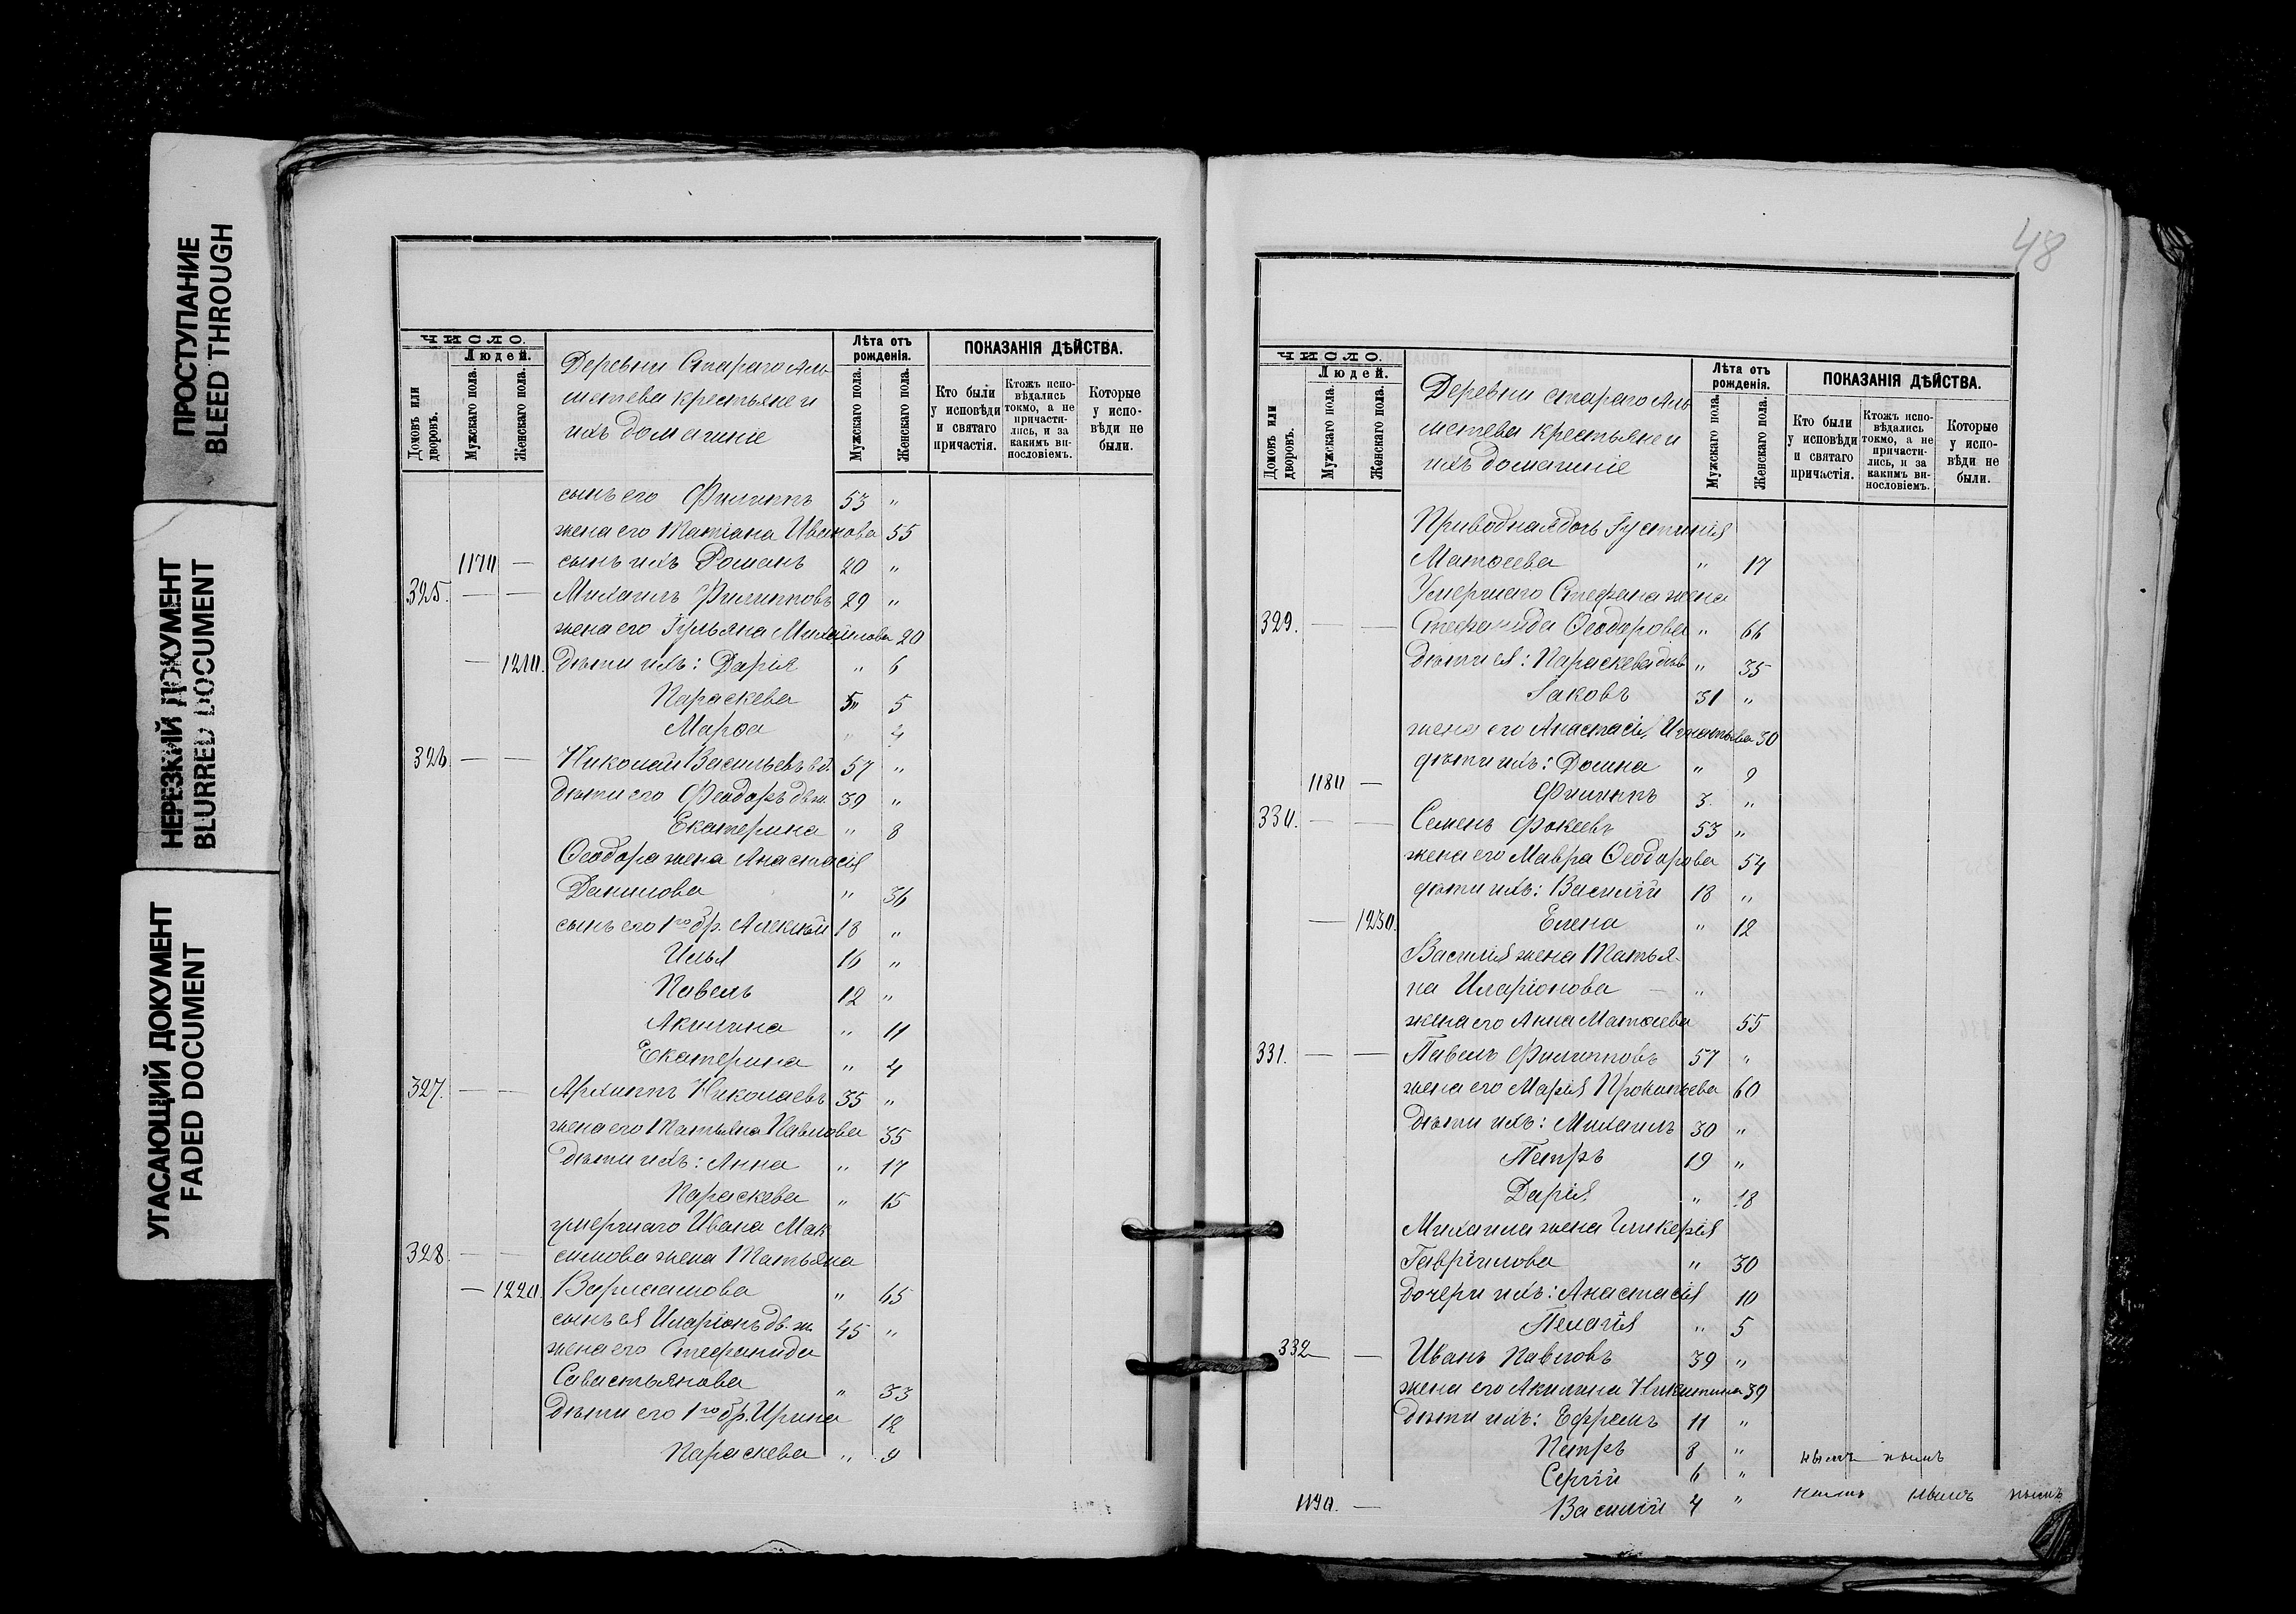 ПРОСТУПАНИЕ
BLEED THROUGH
НЕРЕЗКИЙ ДОКУМЕНТ
BLURRED DOCUMENT
УГАСАЮЩИЙ ДОКУМЕНТ
FADED DOCUMENT
ЧИСЛО.
Людей.
Домовъ или дворовъ.
Мужскаго пола.
Женскаго пола.
Деревни Стараго Аль
метева крестьяне и
ихъ домашніе
Лѣта отъ рожденія.
Мужскаго пола.
Женскаго пола.
ПОКАЗАНІЯ ДѢЙСТВА.
Кто были у исповѣди и святаго причастія.
Ктожъ испо-вѣдались токмо, а не причасти-лись, и за какимъ ви-нословіемъ.
Которые у испо-вѣди не были.
сынъ его Филиппъ 53 "
жена его Татіана Иванова 55
1170 — сынъ ихъ Романъ 20 "
325. — — Михаилъ Филипповъ 29 "
жена его Іульяна Михайлова 20
— 1210. Дѣти ихъ: Дарія " 6
Параскева " 5
Марѳа " 4
326 — — Николай Васильевъ вд. 57 "
дѣти его Феодоръ дв.ж. 39 "
Екатерина " 8
Ѳеодора жена Анастасія
Данилова " 36
сынъ его 1го бр. Алексѣй 18 "
Илья 16 "
Павелъ 12 "
Акилина " 11
Екатерина " 4
327. — — Архиппъ Николаевъ 35 "
жена его Татьяна Павлова 35
Дѣти ихъ: Анна " 17
Параскева " 15
умершаго Ивана Мак
328. — — симова жена Татьяна
— 1220. Варлаамова " 65
сынъ ея Иларіонъ дв. ж. 45 "
жена его Стефанида
Савастьянова " 33
Дѣти его 1го бр. Ирина 12
Параскева " 9
48
ЧИСЛО.
Людей.
Домовъ или дворовъ.
Мужскаго пола.
Женскаго пола.
Деревни стараго Аль
метева крестьяне и
ихъ домашніе
Лѣта отъ рожденія.
Мужскаго пола.
Женскаго пола.
ПОКАЗАНІЯ ДѢЙСТВА.
Кто были у исповѣди и святаго причастія.
Ктожъ испо-вѣдались токмо, а не причасти-лись, и за какимъ ви-нословіемъ.
Которые у испо-вѣди не были.
Приводная дочь Іустинія
Матѳеева " 17
Умершаго Стефана жена
329. — — Стефанида Ѳеодорова " 66
Дѣти ея: Параскева " 35
Іаковъ 31 "
жена его Анастасія Игнатьева 30
дѣти ихъ: Домна " 9
1180 — Филиппъ 3 "
330. — — Семенъ Фокеевъ 53 "
жена его Мавра Ѳеодорова 54
дѣти ихъ: Василій 18 "
— 1230. Елена " 12
Василія жена Татья
на Иларіонова — "
жена его Анна Матѳеева 55
331. — — Павелъ Филипповъ 57 "
жена его Марія Прокопьева 60
Дѣти ихъ: Михаилъ 30 "
Петръ 19 "
Дарія " 18
Михаила жена Гликерія
Гавріилова " 30
дочери ихъ: Анастасія 10
Пелагія " 5
332 — — Иванъ Павловъ 39 "
жена его Акилина Никитина 39
Дѣти ихъ: Ефремъ 11 "
Петръ 8 "
Сергій 6 "
1190. — Василій 4 "